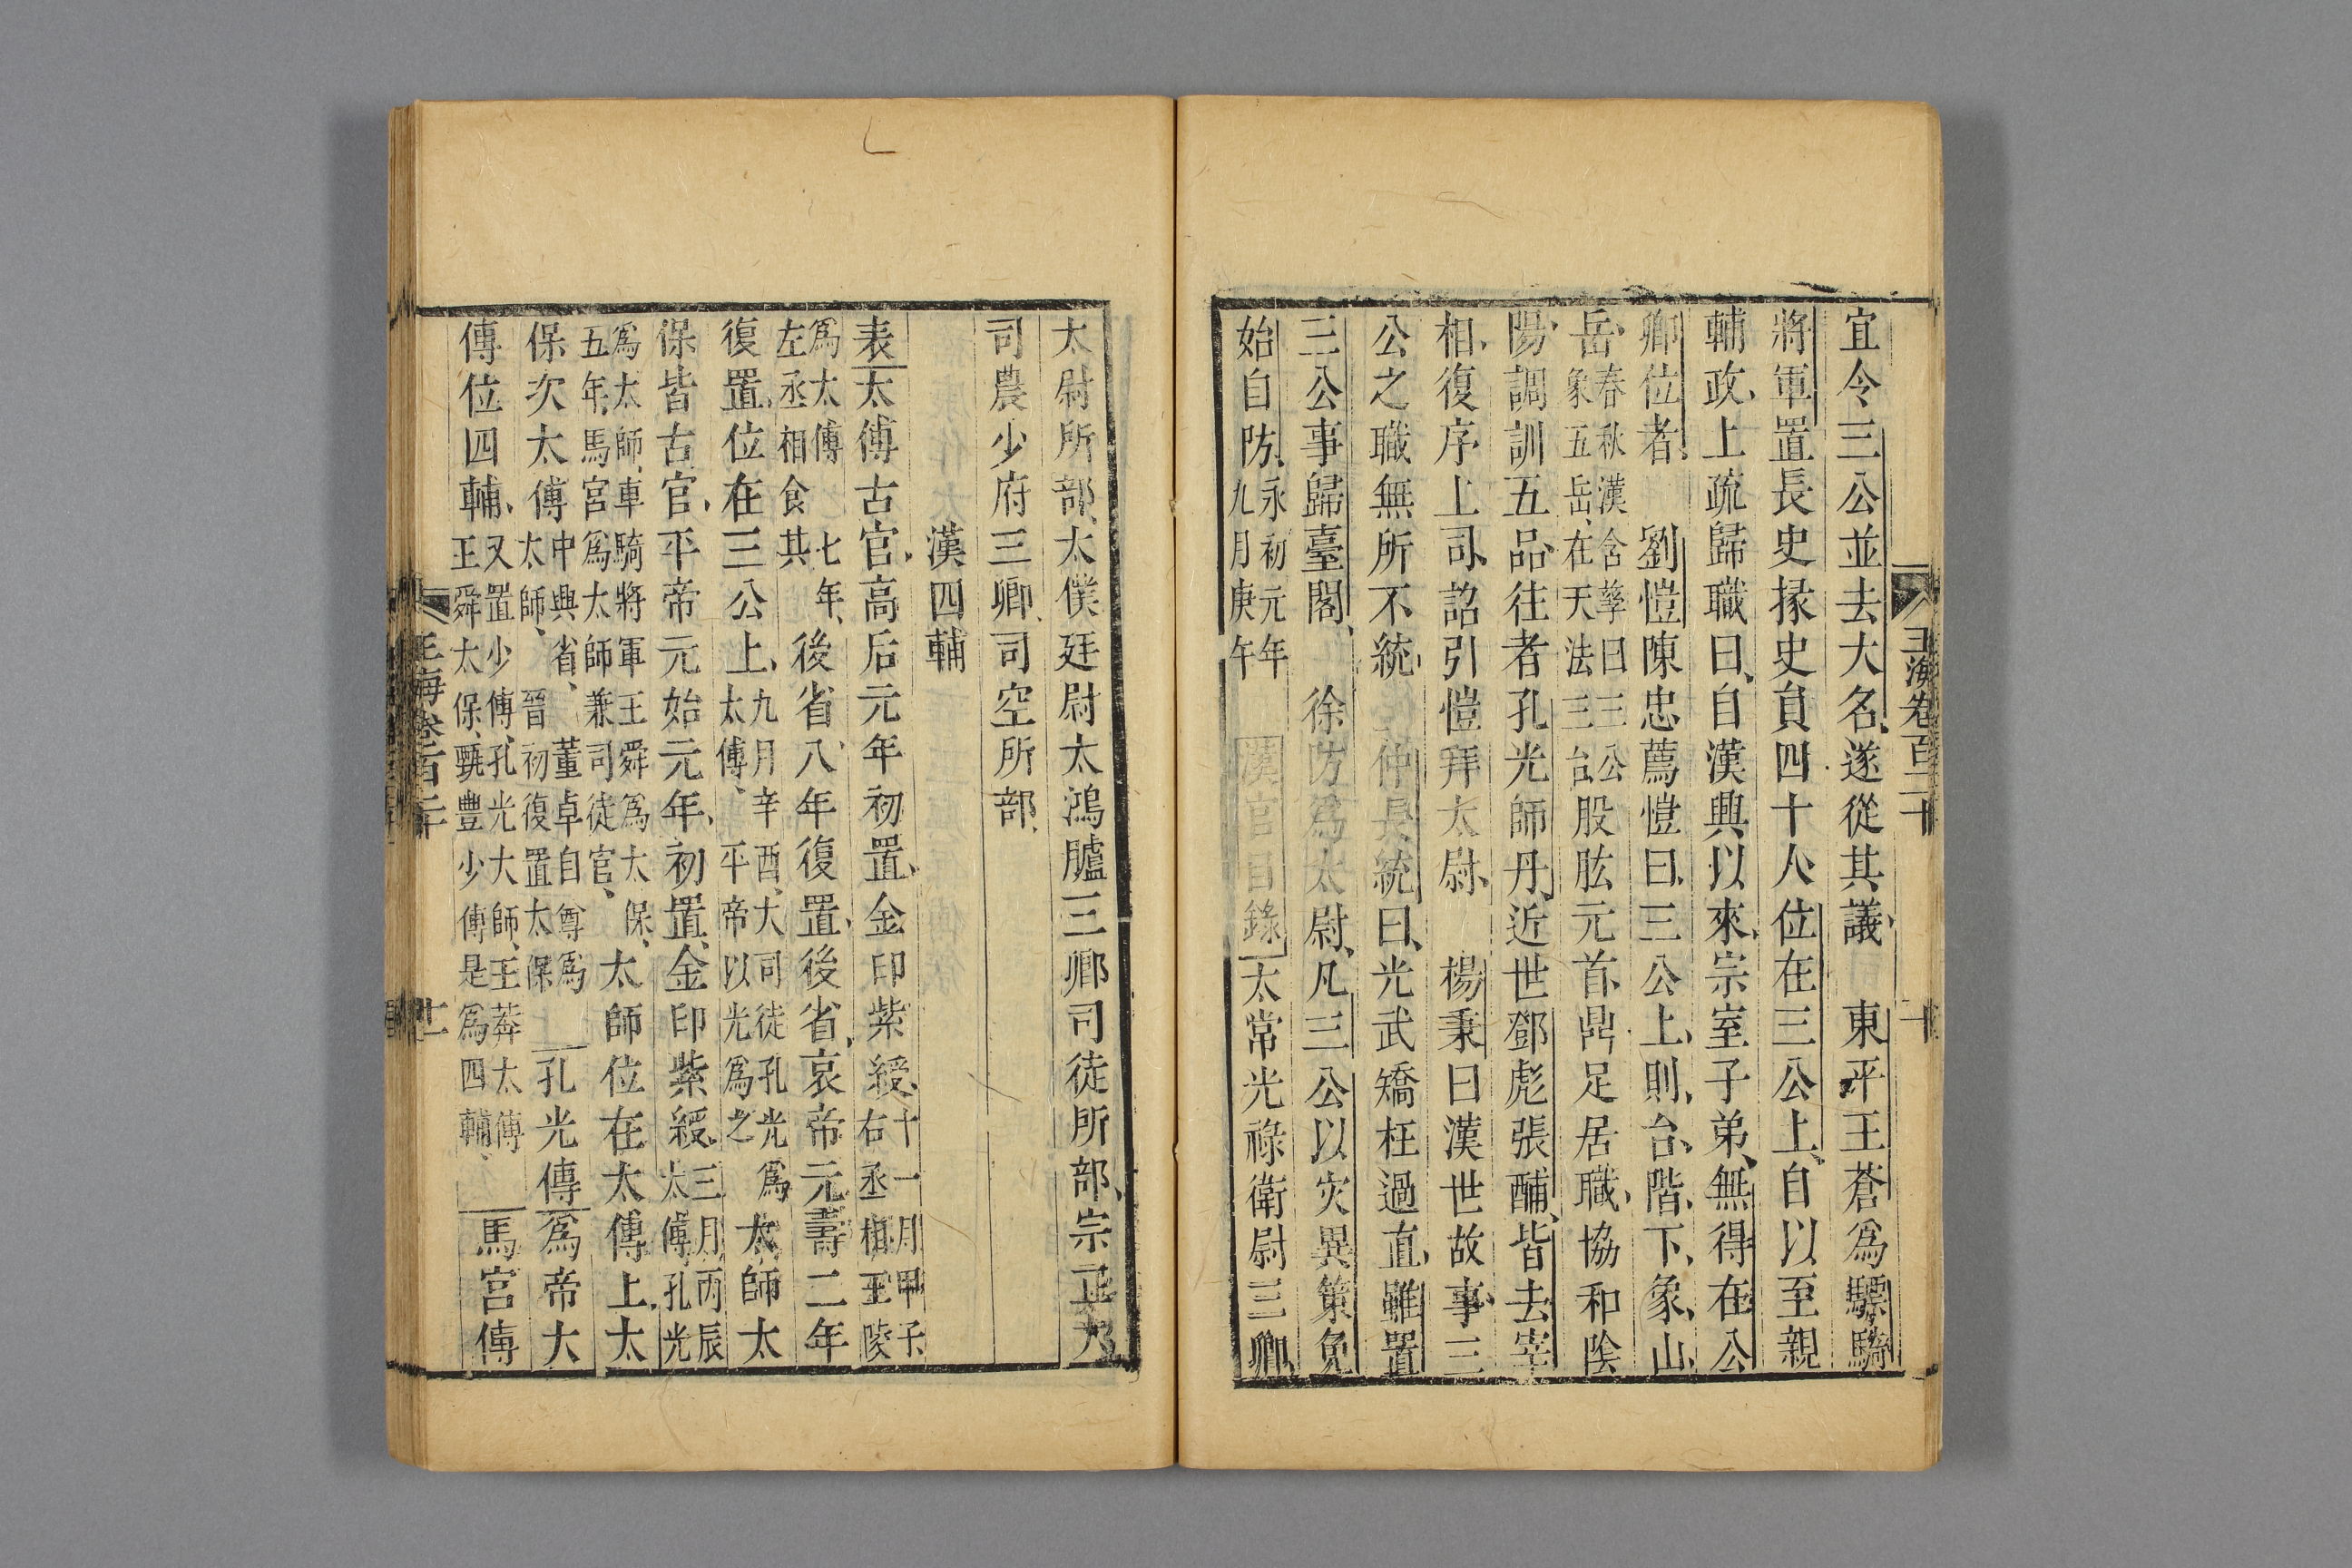 宜令三公並去大名遂從其議　東平王蒼爲驃騎
將軍置長史掾史員四十人位在三公上自以至親
輔政上疏歸職曰自漢興以來宗室子弟無得在公
卿位者　劉愷陳忠薦愷曰三公上則台階下象山
岳春秋漢含孳曰三公象五岳在天法三台股肱元首鼎足居職協和陰
陽調訓五品往者孔光師丹近世鄧彪張酺皆去宰
相復序上司詔引愷拜太尉　楊秉曰漢世故事三
公之職無所不統　仲長統曰光武矯枉過直雖置
三公事歸臺閣　徐防爲太尉凡三公以災異策免
始自防永初元年九月庚午　漢官目錄太常光祿衛尉三卿
玉海卷百二十
太尉所部太僕廷尉太鴻臚三卿司徒所部宗正大
司農少府三卿司空所部
漢四輔
表太傅古官高后元年初置金印紫綬十一月甲子右丞相王陵
爲太傅左丞相食其七年後省八年復置後省哀帝元壽二年
復置位在三公上九月辛酉大司徒孔光爲太傅平帝以光爲之太師太
保皆古官平帝元始元年初置金印紫綬三月丙辰太傅孔光
爲太師車騎將軍王舜爲太保五年馬宮爲太師兼司徒官太師位在太傅上太
保次太傅中興省董卓自尊爲太師晉初復置太保孔光傳爲帝太
傅位四輔又置少傅孔光大師王莽太傅王舜太保甄豐少傅是爲四輔馬宮傳
玉海卷百二十